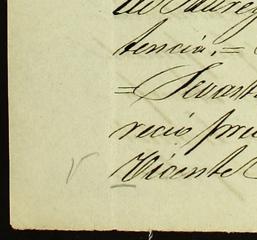 tencia. =
= Sevast
recio pre
Vicente